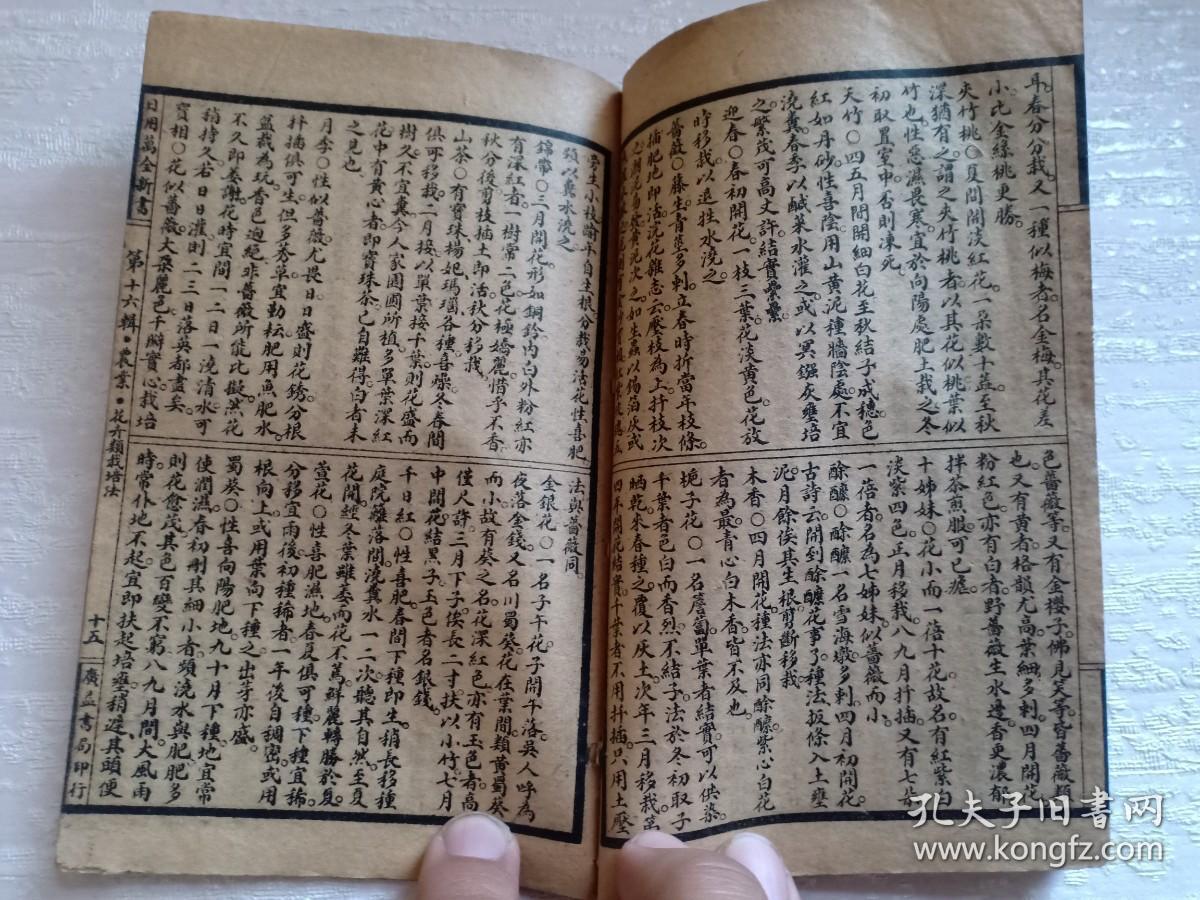 耳春分分栽又一種似梅者名金梅其花差
小比金絲桃更勝
夾竹桃○夏間開淡紅花一朶數十蕊至秋
深猶有之謂之夾竹桃者以其花似桃葉似
竹也性惡濕畏寒宜於向陽處肥土栽之冬
初取置室中否則凍死
天竹○四五月間開細白花至秋結子成穗色
紅如丹砂性喜陰用山黃泥種牆陰處不宜
澆糞春季以鹹菜水灌之或以冥鏹灰壅培
之繁茂可高丈許結實纍纍
迎春○春初開花一枝三葉花淡黃色花放
時移栽以退牲水澆之
薔薇○藤生青莖多刺立春時折當年枝條
插肥地即活浣花雜志云壓枝為上扦枝次
色薔薇等又有金櫻子佛見笑等皆薔薇類
也又有黃者格韻尤高葉細多刺四月開花
粉紅色亦有白者野薔薇生水邊香更濃郁
拌茶煎服可已瘧
十姊妹○花小而一蓓十花故名有紅紫白
淡紫四色正月移栽八九月扦插又有七朶
一蓓者名為七姊妹似薔薇而小
酴醾○酴醾一名雪海墩多刺四月初開花
古詩云開到酴醾花事了種法扳條入土壅
泥月餘俟其生根剪斷移栽
木香○四月開花種法亦同酴醾紫心白花
者為最青心白木香皆不及也
梔子花○一名簷蔔單葉者結實可以供染
千葉者色白而香烈不結子法於冬初取子
晒乾來春種之覆以灰土次年三月移栽第
四年開花結實千葉者不用扦插只用土壓
旁生小枝踰年自生根分栽易活花性喜肥
須以糞水澆之
錦帶○三月開花形如銅鈴內白外粉紅亦
有深紅者一樹常二色花極嬌麗惜乎不香
秋分後剪枝插土即活秋分移栽
山茶○有寶珠楊妃瑪瑙各種喜燥冬春間
俱可移栽二月接以單葉接千葉則花盛而
樹久不宜糞今人家園圃所植多單葉深紅
花中有黃心者即寶珠茶已自難得白者未
之見也
月季○性似薔薇尤畏日日盛則花銹分根
扦插俱可生但多秀單宜勤耘肥用魚肥水
盆栽為玩香色迥絕非薔薇所能比擬然花
不久即萎謝花時宜間一二日一澆清水可
稍持久若日日灌則二三日落英都盡矣
寶相○花似薔薇大朶麗色千瓣實心栽培
法與薔薇同
金銀花○一名子午花子開午落吳人呼為
夜落金錢又名川蜀葵花在葉間類黃蜀葵
而小故有葵之名花深紅色亦有玉色者高
僅尺許三月下子俟長二寸扶以小竹七月
中開花結黑子玉色者名銀錢
千日紅○性喜肥春間下種即生稍長移種
庭院籬落間澆糞水一二次聽其自然至夏
花開經冬葉雖委而花不蔫鮮麗轉勝於夏
萱花○性喜肥濕地春夏俱可種下種宜稀
分移宜雨後初種稀者一年後自稠密或用
根向上或用葉向下種之出芽亦盛
蜀葵○性喜向陽肥地九十月下種地宜常
使潤濕春初刪其細小者頻澆水與肥肥多
則花愈茂其色百變不窮八九月間大風雨
時常仆地不起宜即扶起培壅稍遲其頭便
日用萬全新書
第十六輯●農業●花卉類栽培法
十五
廣益書局印行
孔夫子旧書网
www.kongfz.com